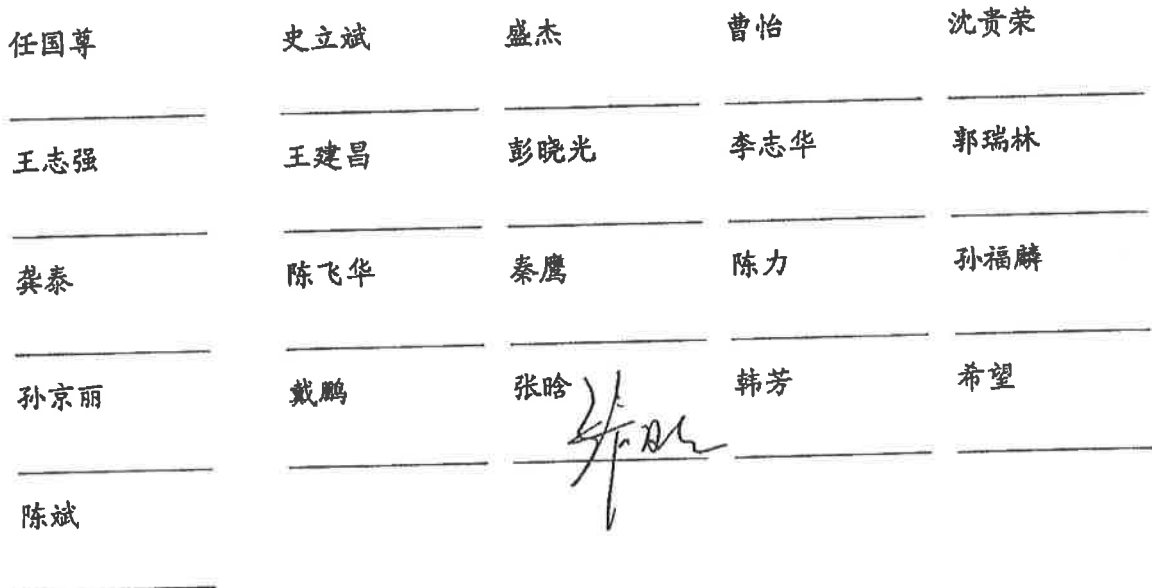 任国尊 史立斌 盛杰 曹怡 沈贵荣
王志强 王建昌 彭晓光 李志华 郭瑞林
龚泰 陈飞华 秦鹰 陈力 孙福麟
孙京丽 戴鹏 张晗 韩芳 希望
陈斌